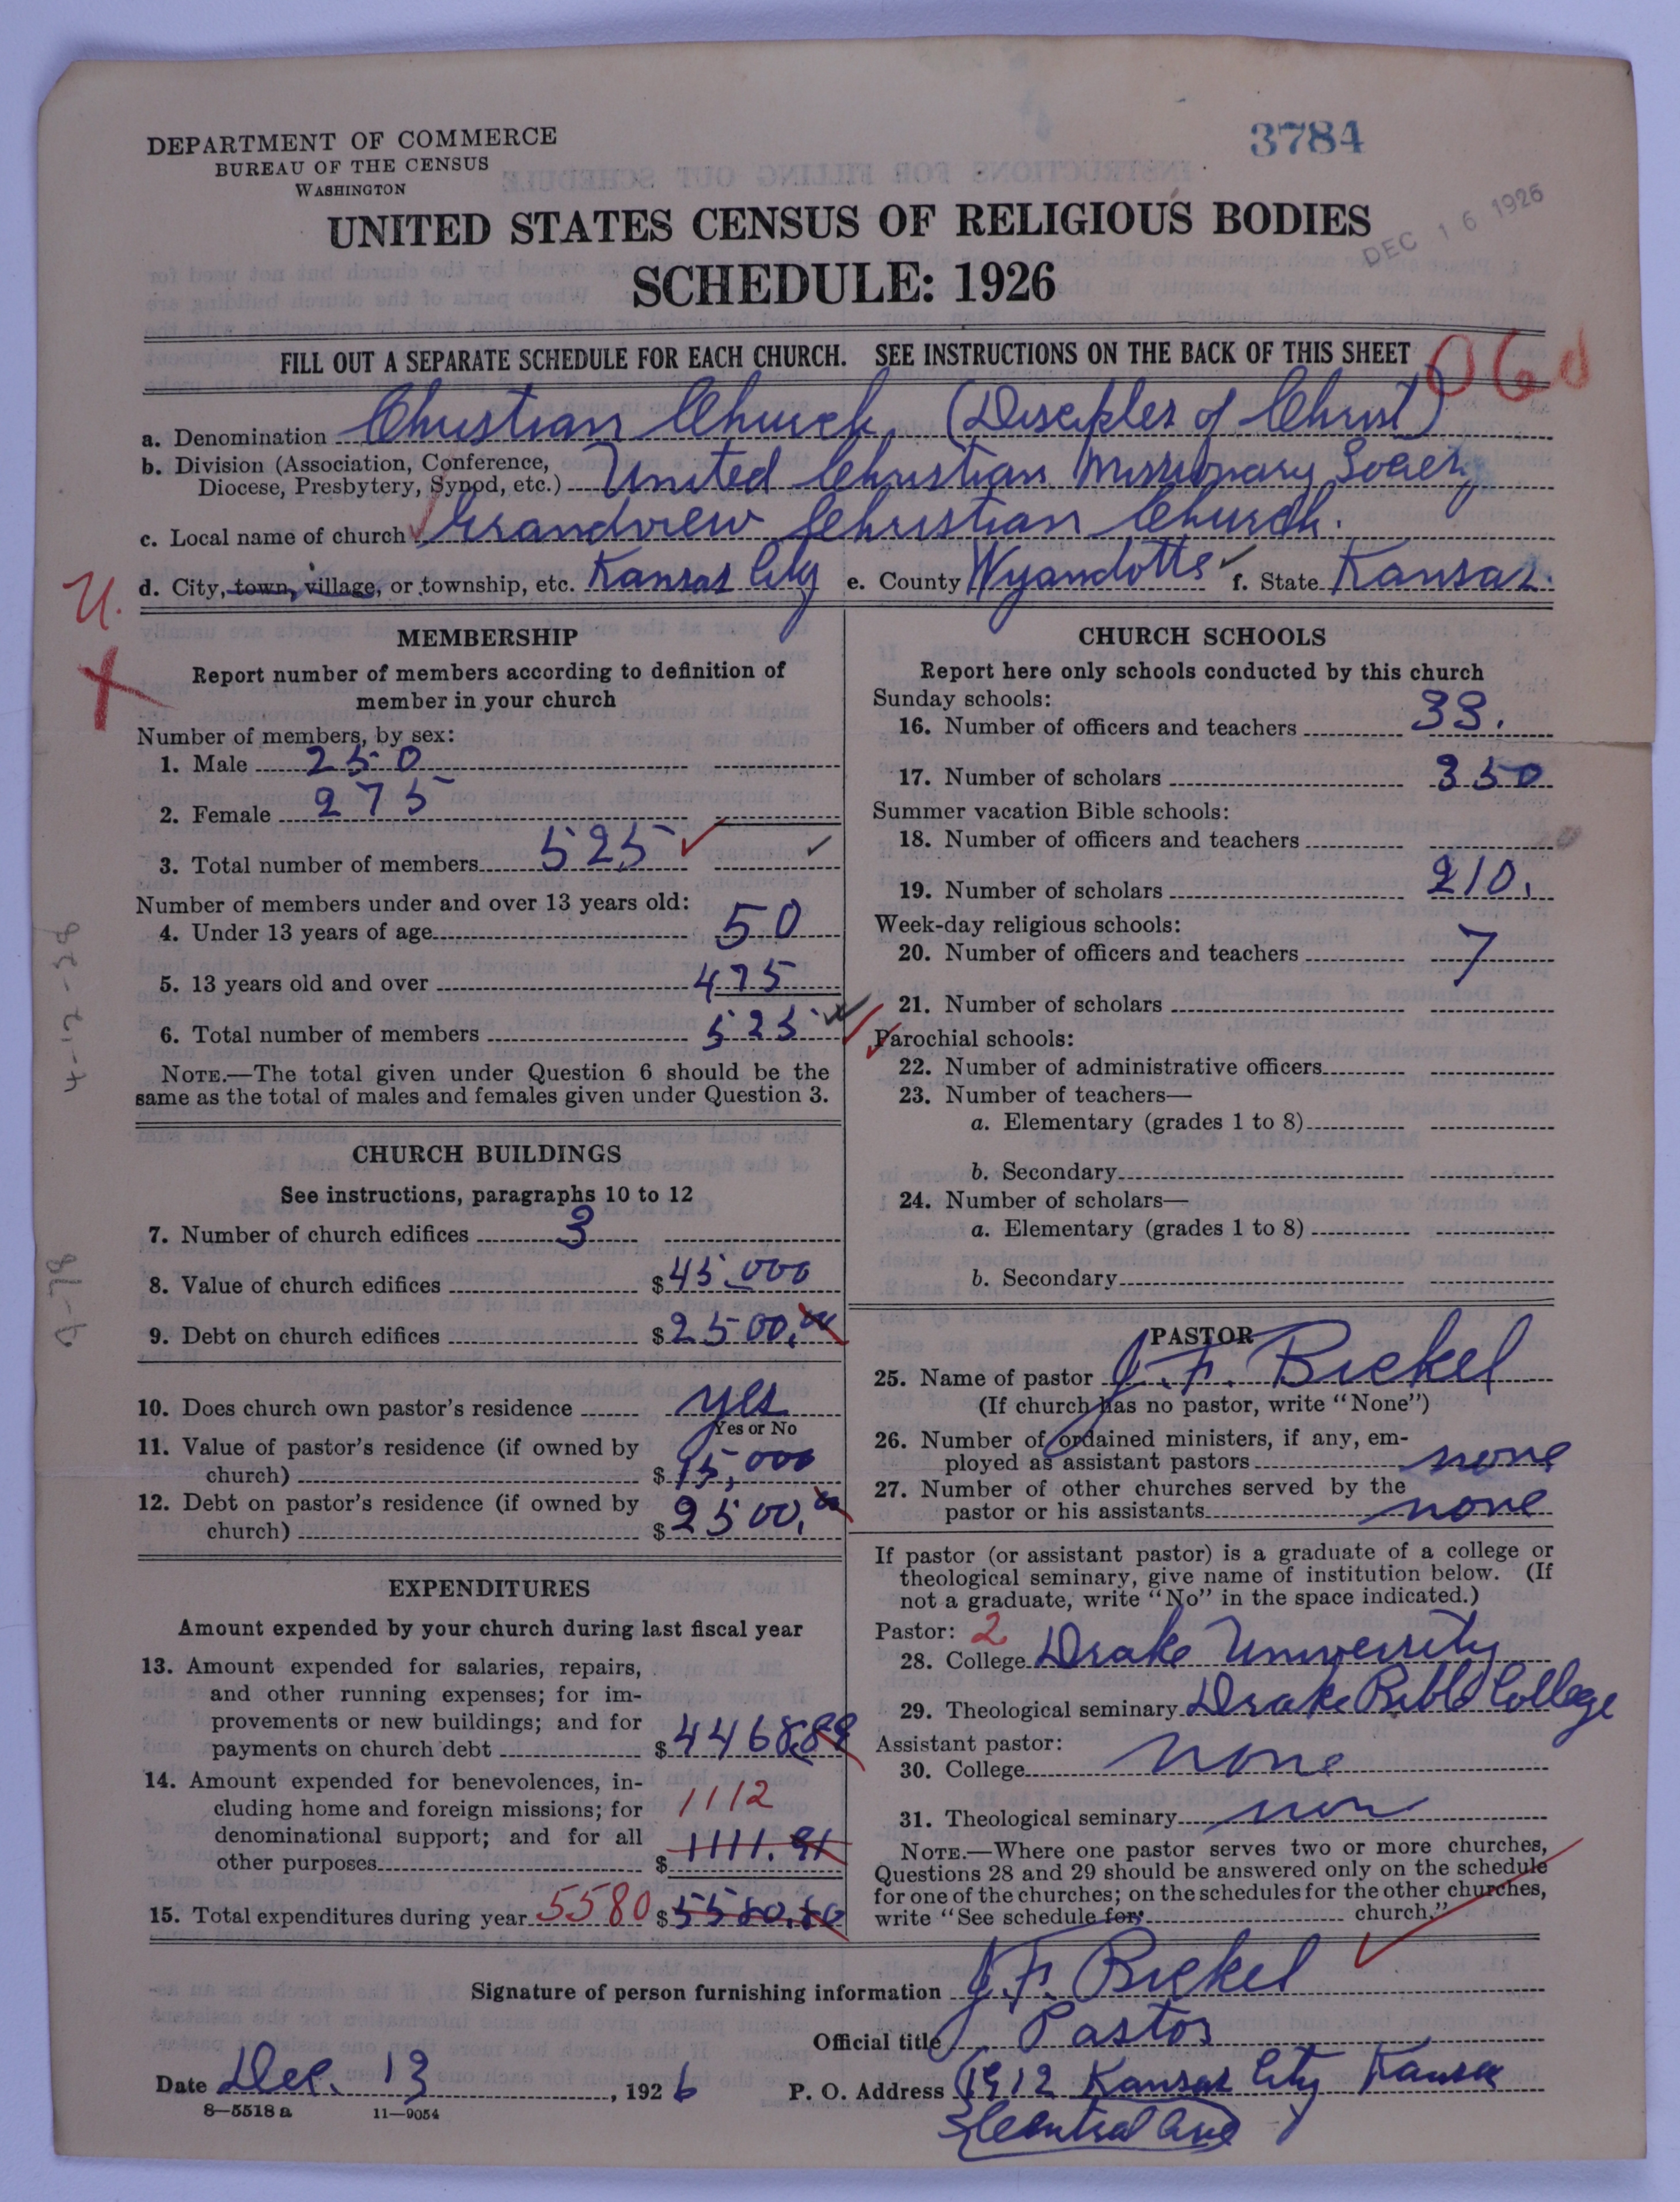 DEPARTMENT OF COMMERCE
BUREAU OF THE CENSUS
WASHINGTON
3784
DEC 16 1926
UNITED STATES CENSUS OF RELIGIOUS BODIES
SCHEDULE: 1926
FILL OUT A SEPARATE SCHEDULE FOR EACH CHURCH. SEE INSTRUCTIONS ON THE BACK OF THIS SHEET
a. Denomination Christian Church (Disciples of Christ)
b. Division (Association, Conference, Diocese, Presbytery, Synod, etc.) United Christian Missionary Society
c. Local name of church Grandview Christian Church.
d. City, town, village, or township, etc. Kansas City e. County Wyandotte f. State Kansas.
U.
X
MEMBERSHIP
Report number of members according to definition of
member in your church
Number of members, by sex:
1. Male 250
2. Female 275
3. Total number of members 525
Number of members under and over 13 years old:
4. Under 13 years of age 50
5. 13 years old and over 475
6. Total number of members 525
NOTE.—The total given under Question 6 should be the
same as the total of males and females given under Question 3.
CHURCH BUILDINGS
See instructions, paragraphs 10 to 12
7. Number of church edifices 3
8. Value of church edifices $45,000
9. Debt on church edifices $2500.00
10. Does church own pastor's residence yes
Yes or No
11. Value of pastor's residence (if owned by
church) $15,000
12. Debt on pastor's residence (if owned by
church) $2500.00
EXPENDITURES
Amount expended by your church during last fiscal year
13. Amount expended for salaries, repairs,
and other running expenses; for im-
provements or new buildings; and for
payments on church debt $4468.89
14. Amount expended for benevolences, in-
cluding home and foreign missions; for 1112
denominational support; and for all
other purposes $1111.91
15. Total expenditures during year 5580 $5580.80
CHURCH SCHOOLS
Report here only schools conducted by this church
Sunday schools:
16. Number of officers and teachers 33.
17. Number of scholars 350
Summer vacation Bible schools:
18. Number of officers and teachers
19. Number of scholars 210.
Week-day religious schools:
20. Number of officers and teachers 7
21. Number of scholars
Parochial schools:
22. Number of administrative officers
23. Number of teachers—
a. Elementary (grades 1 to 8)
b. Secondary
24. Number of scholars—
a. Elementary (grades 1 to 8)
b. Secondary
PASTOR
25. Name of pastor J. F. Bickel
(If church has no pastor, write "None")
26. Number of ordained ministers, if any, em-
ployed as assistant pastors none
27. Number of other churches served by the
pastor or his assistants none
If pastor (or assistant pastor) is a graduate of a college or
theological seminary, give name of institution below. (If
not a graduate, write "No" in the space indicated.)
Pastor: 2
28. College Drake University
29. Theological seminary Drake Bible College
Assistant pastor:
30. College none
31. Theological seminary non
NOTE.—Where one pastor serves two or more churches,
Questions 28 and 29 should be answered only on the schedule
for one of the churches; on the schedules for the other churches,
write "See schedule for church."
Signature of person furnishing information J. F. Bickel
Official title Pastor
Date Dec. 13, 1926 P. O. Address 1912 Kansas City Kansas
Central Ave
8—5518 a 11—9054